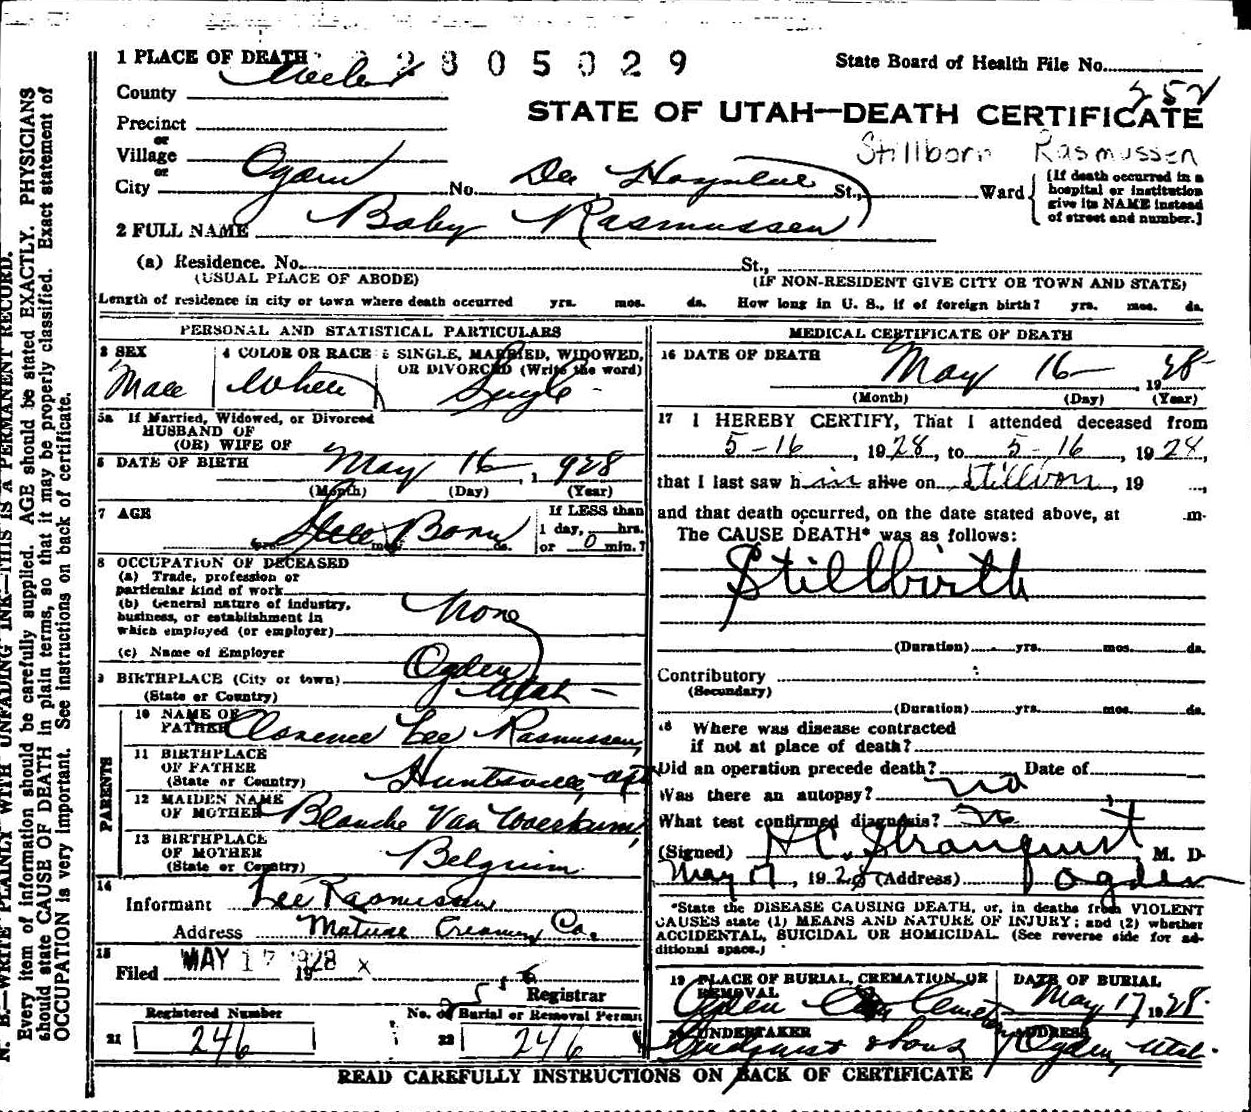 1 PLACE OF DEATH 2 8 0 5 0 2 9 State Board of Health File No.
County Weber 252
STATE OF UTAH—DEATH CERTIFICATE
Precinct
or
Village
Stillborn Rasmussen
or
City Ogden No. Dee Hospital St., Ward
[If death occurred in a
hospital or institution
give its NAME instead
of street and number.]
2 FULL NAME Baby Rasmussen
(a) Residence. No. St.,
(USUAL PLACE OF ABODE) (IF NON-RESIDENT GIVE CITY OR TOWN AND STATE)
Length of residence in city or town where death occurred yrs. mos. ds. How long in U. S., if of foreign birth? yrs. mos. ds.
PERSONAL AND STATISTICAL PARTICULARS
3 SEX 4 COLOR OR RACE 5 SINGLE, MARRIED, WIDOWED,
OR DIVORCED (Write the word)
Male White Single
5a If Married, Widowed, or Divorced
HUSBAND OF
(OR) WIFE OF
6 DATE OF BIRTH May 16 1928
(Month) (Day) (Year)
7 AGE Still Born
If LESS than
1 day, hrs.
or 0 min.?
yrs. mos. ds.
8 OCCUPATION OF DECEASED
(a) Trade, profession or
particular kind of work
(b) General nature of industry,
business, or establishment in
which employed (or employer)
None
(c) Name of Employer
9 BIRTHPLACE (City or town) Ogden
(State or Country) Utah
PARENTS
10 NAME OF
FATHER Clarence Lee Rasmussen
11 BIRTHPLACE
OF FATHER
(State or Country) Huntsville,
12 MAIDEN NAME
OF MOTHER Blanche Van Woerkum
13 BIRTHPLACE
OF MOTHER
(State or Country) Belgium
14
Informant Lee Rasmussen
Address Mutual Creamery Co.
15
Filed MAY 17 1928 x
19
Registrar
Registered Number No. of Burial or Removal Permit
21 246 22 246
MEDICAL CERTIFICATE OF DEATH
16 DATE OF DEATH
May 16 1928
(Month) (Day) (Year)
17 I HEREBY CERTIFY, That I attended deceased from
5-16, 1928, to 5-16, 1928,
that I last saw him alive on Stillborn, 19 ,
and that death occurred, on the date stated above, at m.
The CAUSE DEATH* was as follows:
Stillbirth
(Duration) yrs. mos. ds.
Contributory
(Secondary)
(Duration) yrs. mos. ds.
18 Where was disease contracted
if not at place of death?
Did an operation precede death? Date of
Was there an autopsy? no
What test confirmed diagnosis?
(Signed) H.C. Stranquist M. D.
May 17, 1928 (Address) Ogden
*State the DISEASE CAUSING DEATH, or, in deaths from VIOLENT
CAUSES state (1) MEANS AND NATURE OF INJURY; and (2) whether
ACCIDENTAL, SUICIDAL OR HOMICIDAL. (See reverse side for ad-
ditional space.)
19 PLACE OF BURIAL, CREMATION, OR
REMOVAL DATE OF BURIAL
Ogden City Cemetery May 17 1928
20 UNDERTAKER ADDRESS
Lindquist & Sons Ogden, Utah.
READ CAREFULLY INSTRUCTIONS ON BACK OF CERTIFICATE
N. B.—WRITE PLAINLY WITH UNFADING INK—THIS IS A PERMANENT RECORD.
Every item of information should be carefully supplied. AGE should be stated EXACTLY. PHYSICIANS
should state CAUSE OF DEATH in plain terms, so that it may be properly classified. Exact statement of
OCCUPATION is very important. See instructions on back of certificate.